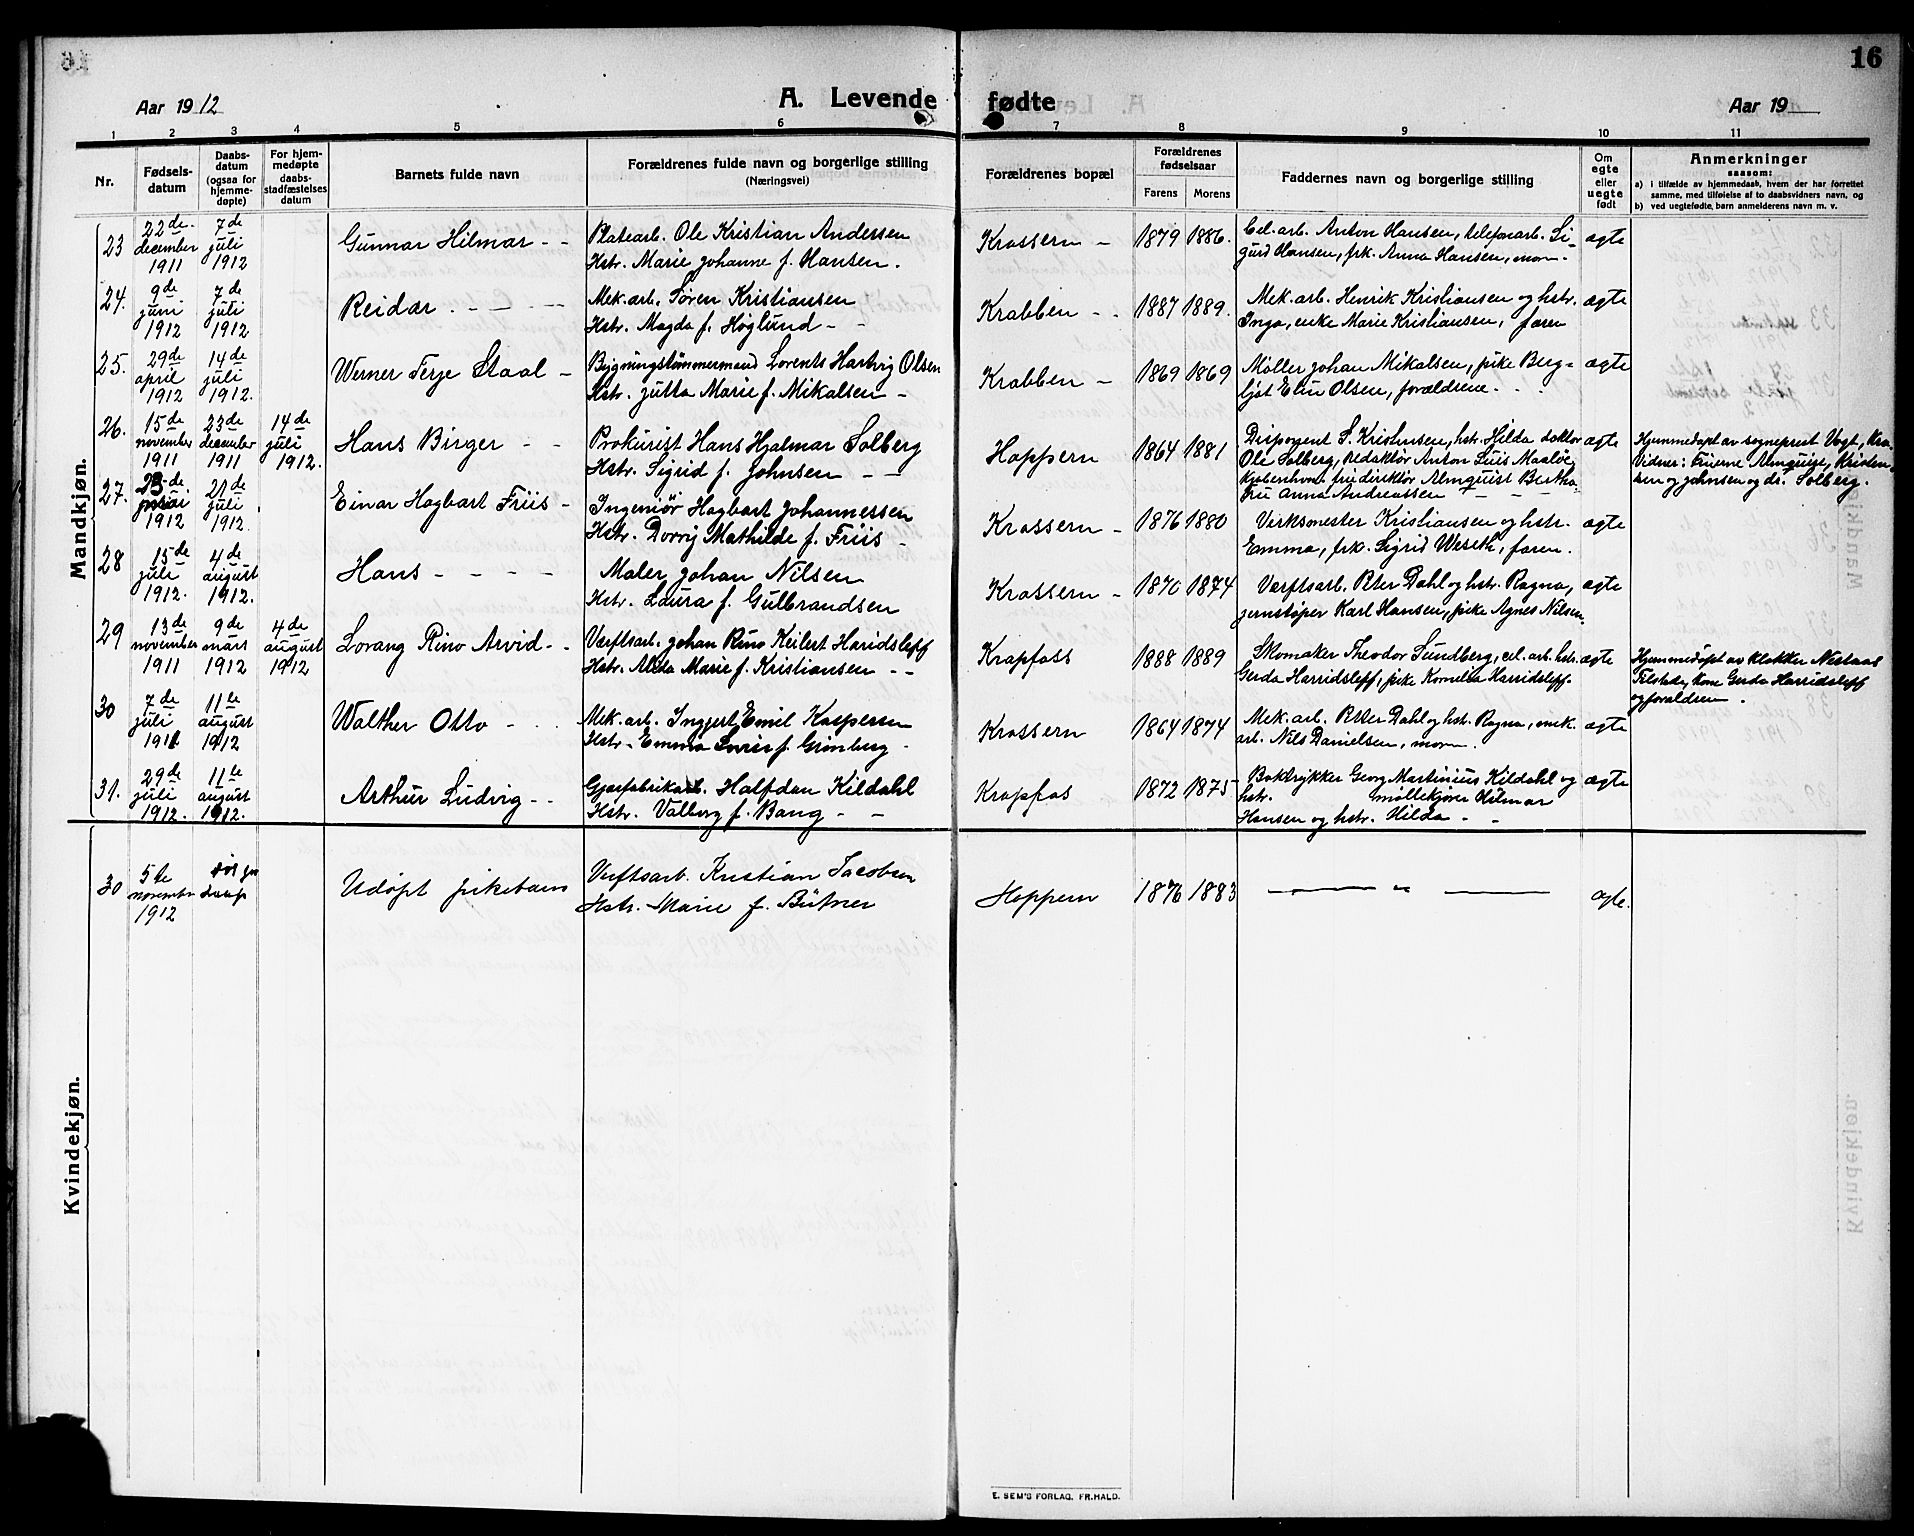 16
Aar 1912
A. Levende fødte
Aar 19
1 2 3 4 5 6 7 8 9 10 11
Nr.
Fødsels-
datum
Daabs-
datum
(ogsaa for
hjemme-
døpte)
For hjem-
medøpte
daabs-
stadfæstelses
datum
Barnets fulde navn
Forældrenes fulde navn og borgerlige stilling
(Næringsvei)
Forældrenes bopæl
Forældrenes
fødselsaar
Farens Morens
Faddernes navn og borgerlige stilling
Om
egte
eller
uegte
født
Anmerkninger
saasom:
a) i tilfælde av hjemmedaab, hvem der har forrettet
samme, med tilføielse af to daabsvidners navn, og
b) ved uegtefødte, barn anmelderens navn m. v.
Mandkjøn.
23
22de
december
1911
7de
juli
1912
Gunnar Hilmar - -
Platearb. Ole Kristian Andersen
Hstr. Marie Johanne f. Hansen.
Krossern -
1879 1886.
Cel. arb. Anton Hansen, telefonarb. Si-
gurd Hansen, frk. Anna Hansen, mon.
ægte
24.
9de
juni
1912
7de
juli
1912
Reidar - - - -
Mek. arb. Søren Kristiansen
Hstr. Magda f. Høglund - -
Krabben - -
1887 1889.
Mek. arb. Henrik Kristiansen og hstr.
Inga, enke Marie Kristiansen, faren
ægte
25.
29de
april
1912
14de
juli
1912.
Werner Terje Staal -
Bygningstømmermand Lorents Hartvig Olsen
Hstr. Jutta Marie f. Mikalsen -
Krabben -
1869 1869
Møller Johan Mikalsen, pike Berg-
ljot Elin Olsen, forældrene - -
ægte
26.
15de
november
1911
23de
december
1911
14de
juli
1912.
Hans Birger - -
Prokurist Hans Hjalmar Solberg
Hstr. Sigrid f. Johnsen - -
Hoppern
1864 1881
Disponent S. Kristensen, hstr. Hilda doktor
Ole Solberg, redaktør Anton Luis Maaløe
Kjøbenhavn fru direktør Almquist Bertha
Fru Anna Andreassen - - -
ægte
Hjemmedøpt av sogneprest Vogt,
Vidner: Fruerne Almquist, Kristen-
sen og Johnsen og dr. Solberg.
27.
23de
1912
21de
juli
1912.
Einar Hagbart Friis -
Ingeniør Hagbart Johannessen
Hstr. Dorry Mathilde f. Friis -
Krossern -
1876 1880
Verksmester Kristiansen og hstr.
Emma, frk. Sigrid Weseth, faren.
ægte
28
15de
juli
1912.
4de
august
1912.
Hans - - - -
Maler Johan Nilsen
Hstr. Laura f. Gulbrandsen
Krossern -
1870 1874
Verftsarb. Peter Dahl og hstr. Ragna,
jernstøper Karl Hansen, pike Agnes Nilsen
ægte
29
13de
november
1911
9de
mars
1912
4de
august
1912
Lorang Rino Arvid - -
Værftsarb. Johan Rino Keilert Haridsleff
Hstr. Alida Marie f. Kristiansen - -
Krapfoss
1888 1889
Skomaker Theodor Sundberg, cel. arb. hstr.
Gerda Harridsleff, pike Kornelia Harridsleff
ægte
Hjemmedøpt av klokker
Tilstede, kone Gerda Harridsleff
og forældrene.
30
7de
juli
1911
11te
august
1912
Walther Otto - -
Mek. arb. Inggert Emil Kaspersen
Hstr. Emma f. Grinberg -
Krossern
1864 1874
Mek. arb. Peter Dahl og hstr. Ragna, mek.
arb. Nils Danielsen, moren.
ægte
31.
29de
juli
1912.
11te
august
1912.
Arthur Ludvig - -
Gjærfabrikarb. Halfdan Kildahl
Hstr. Valborg f. Bang - -
Krapfos
1872 1875
Boktrykker Georg Martinius Kildahl og
hstr. møllekjører Hilmar
Hansen og hstr. Hilda - -
ægte
Kvindekjøn.
30
5te
november
1912
Udøpt pikebarn
Verftsarb. Kristian Jacobsen
Hstr. Marie f. Bütner
Hoppern
1876 1883
— " —
egte.
E. SEM'S FORLAG. FR.HALD.